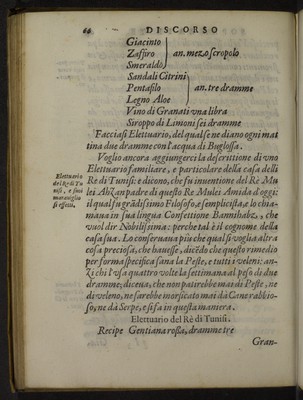 60 DISCORSO
Giacinto
Zaffiro } an. mezo scropolo
Smeraldo
Sandali Citrini
Pentafilo } an. tre dramme
Legno Aloe
Vino di Granati vna libra
Siroppo di Limoni sei dramme
Facciasi Elettuario, del qual se ne diano ogni mat
tina due dramme con l'acqua di Buglossa.
Voglio ancora aggiungerci la descrittione di vno
Elettuario familiare, e particolare della casa delli
Re di Tunisi: e dicono, che fu inuentione del Re Mu
lei Ahzan padre di questo Re Mulei Amida d'oggi:
il qual fu grādissimo Filosofo, e semplicista, e lo chia-
maua in sua lingua Confettione Bannihabz, che
vuol dir Nobilissima: perche tal è il cognome della
casa sua. Lo conseruaua più che qual si voglia altra
cosa preciosa, che hauesse, dicēdo che questo rimedio
per forma specifica sana la Peste, e tutti i veleni: an-
zi chi l'vsa quattro volte la settimana al peso de due
dramme; diceua, che non patirebbe mai di Peste, ne
di veleno, ne sarebbe morsicato mai da Cane rabbio-
so, ne da Serpe, e si fa in questa maniera.
Elettuario del Rè di Tunisi.
Recipe Gentiana rossa, dramme tre
Gran-
Elettuario
del Re di Tu
nisi, e suoi
marauiglio
si effetti.